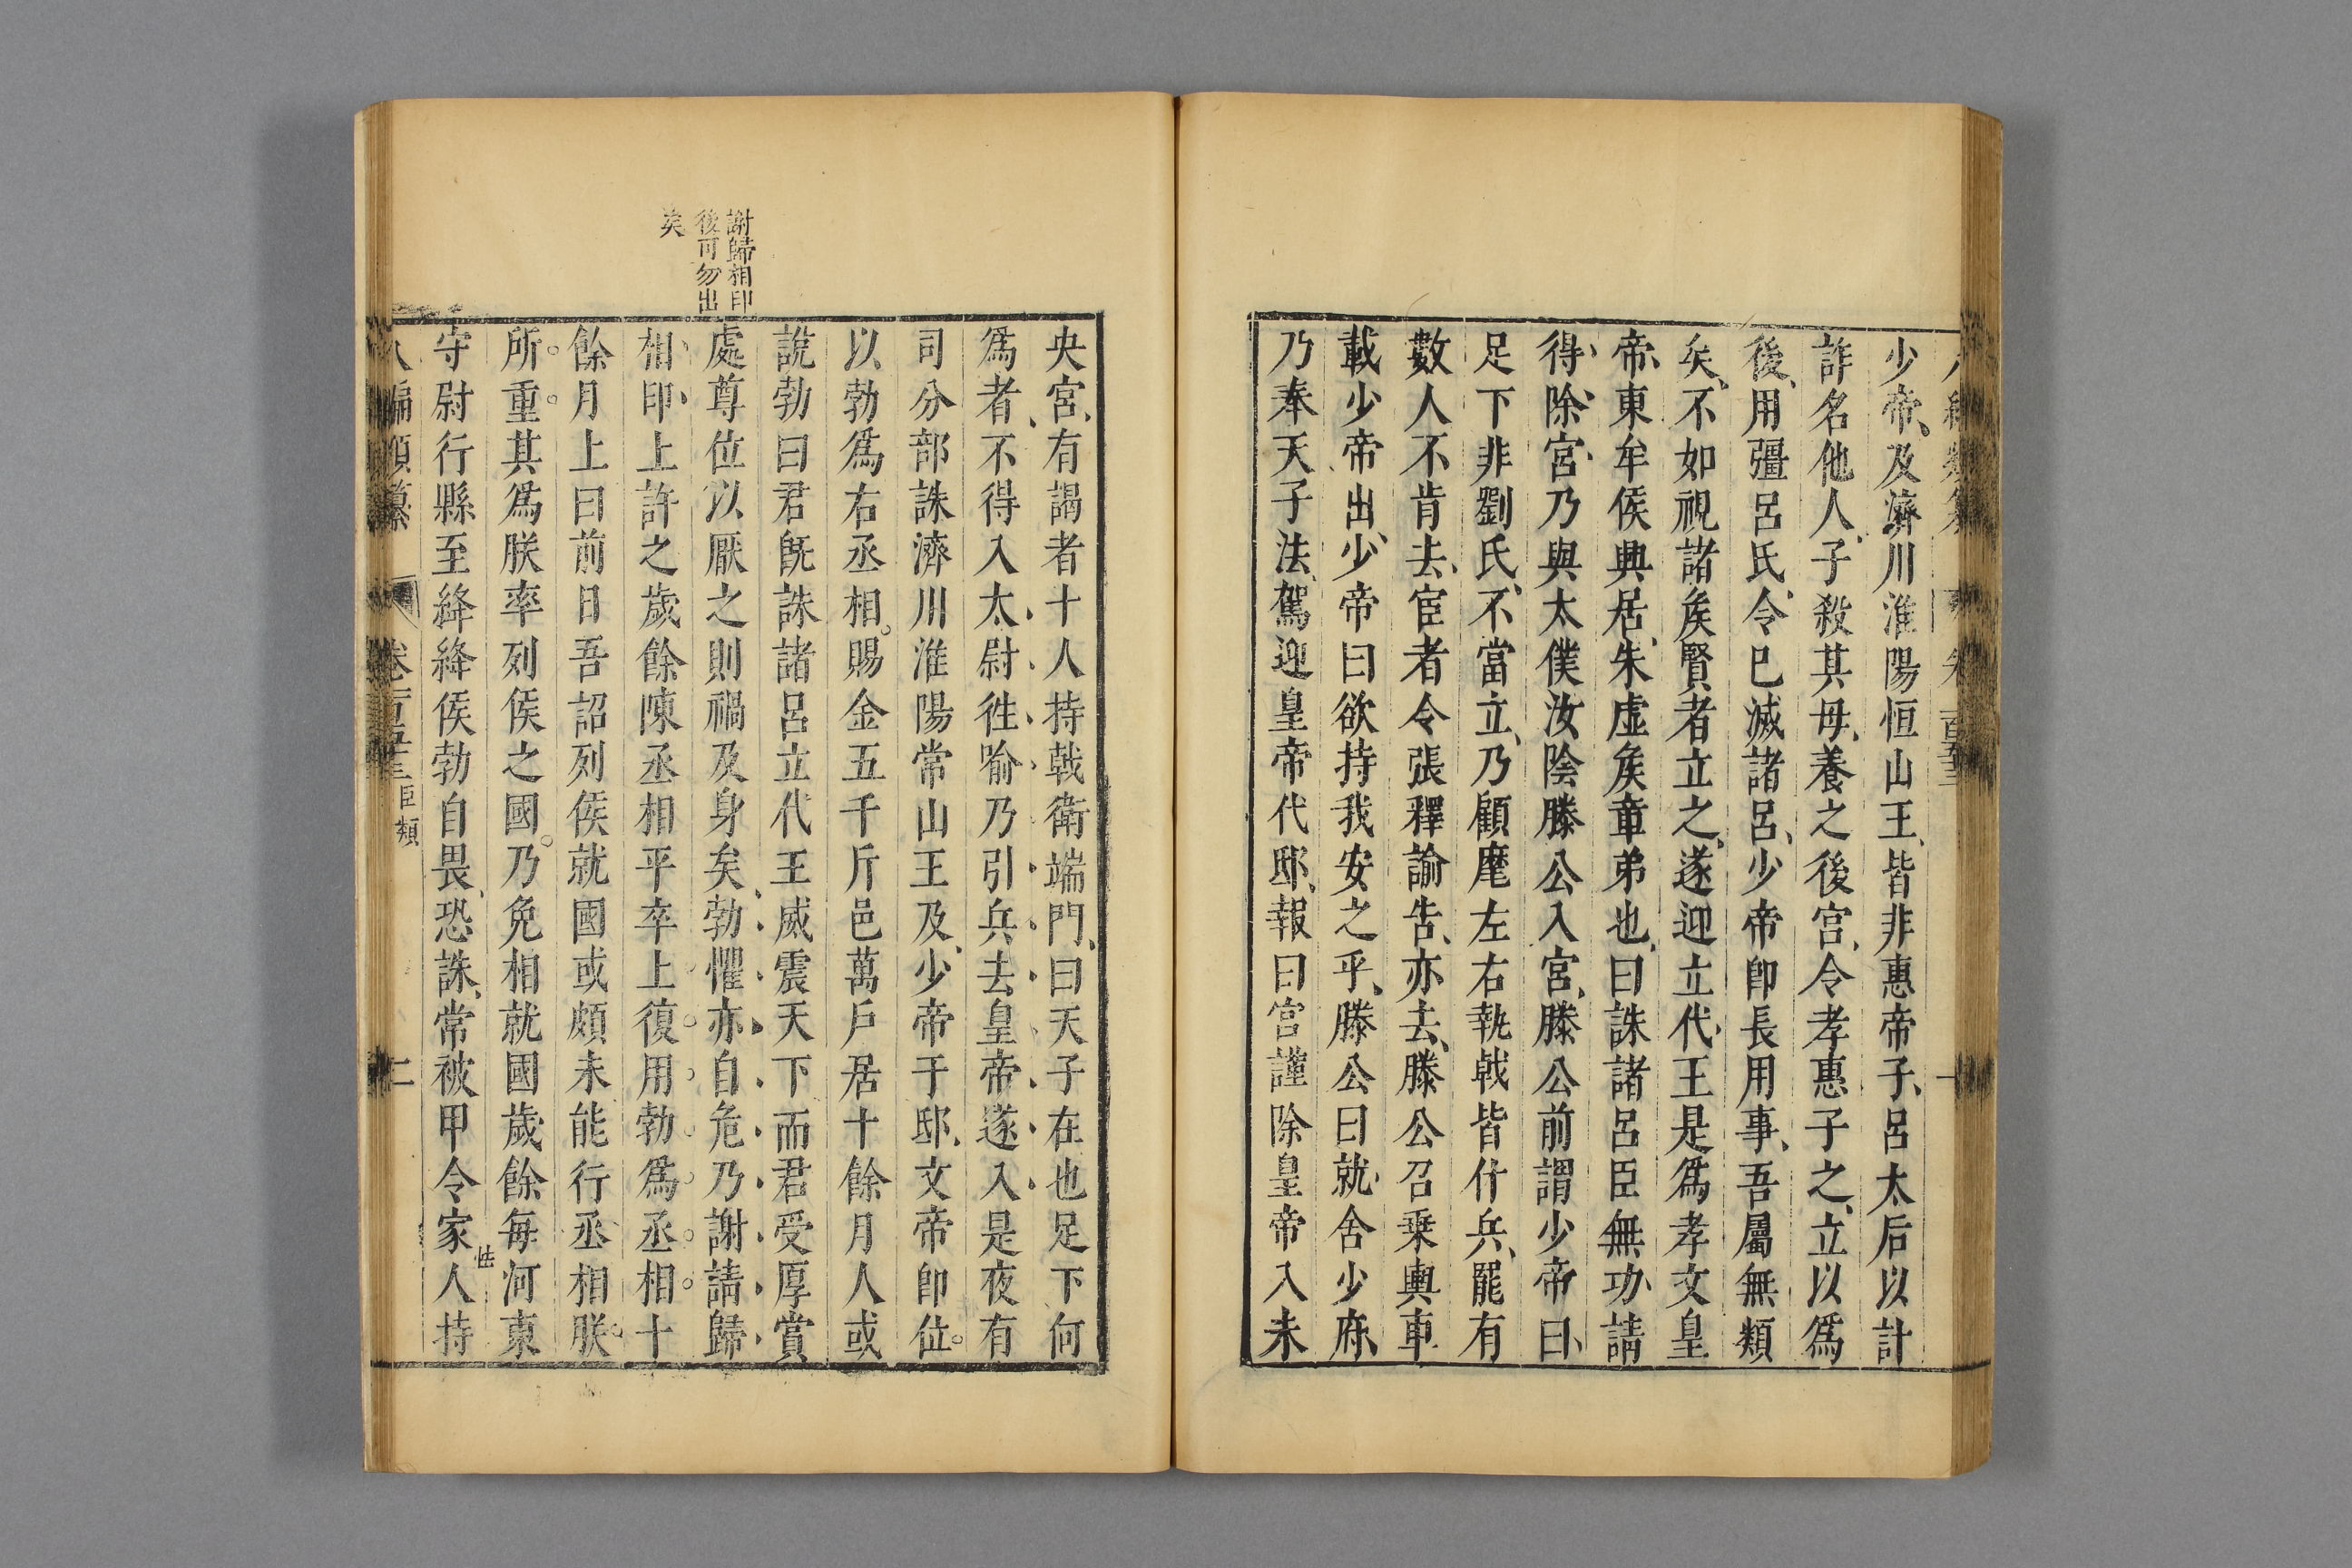 少帝及濟川淮陽恒山王皆非惠帝子呂太后以計
詐名他人子殺其母養之後宮令孝惠子之立以爲
後用彊呂氏令已滅諸呂少帝卽長用事吾屬無類
矣不如視諸矦賢者立之遂迎立代王是爲孝文皇
帝東牟矦興居朱虛矦章弟也曰誅諸呂臣無功請
得除宮乃與太僕汝陰滕公入宮滕公前謂少帝曰
足下非劉氏不當立乃顧麾左右執戟皆仆兵罷有
數人不肯去宦者令張釋諭告亦去滕公召乗輿車
載少帝出少帝曰欲持我安之乎滕公曰就舍少府
乃奉天子法駕迎皇帝代邸報曰宮謹除皇帝入未
央宮有謁者十人持戟衛端門曰天子在也足下何
爲者不得入太尉徃喻乃引兵去皇帝遂入是夜有
司分部誅濟川淮陽常山王及少帝于邸文帝卽位
以勃爲右丞相賜金五千斤邑萬戶居十餘月人或
說勃曰君旣誅諸呂立代王威震天下而君受厚賞
處尊位以厭之則禍及身矣勃懼亦自危乃謝請歸
相印上許之歲餘陳丞相平卒上復用勃爲丞相十
餘月上曰前日吾詔列矦就國或頗未能行丞相朕
所重其爲朕率列矦之國乃免相就國歲餘每河東
守尉行縣至絳絳矦勃自畏恐誅常被甲令家人持
謝歸相印
後可勿出
矣
怯
編類纂 卷一百五十三 臣類 二